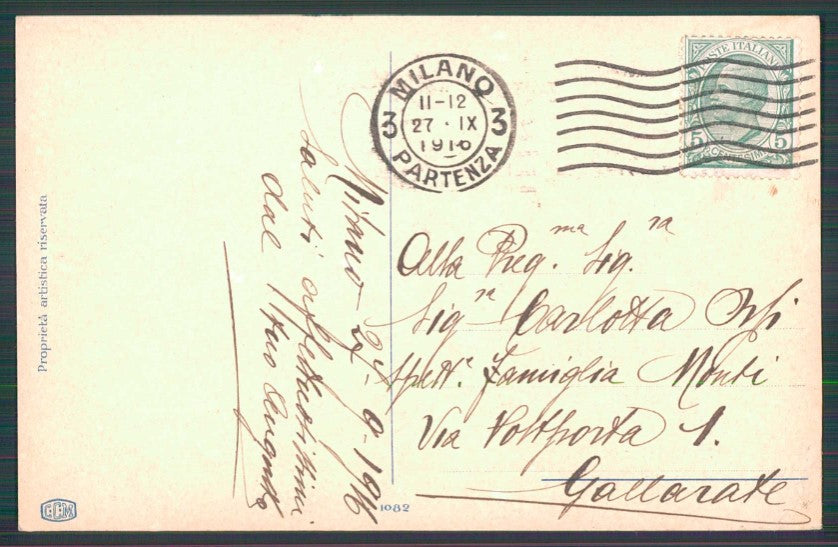 Proprietà artistica riservata
Milano 27-9-1916
Saluti affettuosissimi
dal tuo Augusto
MILANO
3 11-12 3
27 · IX
1916
PARTENZA
POSTE ITALIANE
5 CENTESIMI 5
Alla Preg.ma Sig.ra
Sig.ra Carlotta
Spett. Famiglia Monti
Via Postporta 1.
Gallarate
GCM
1082